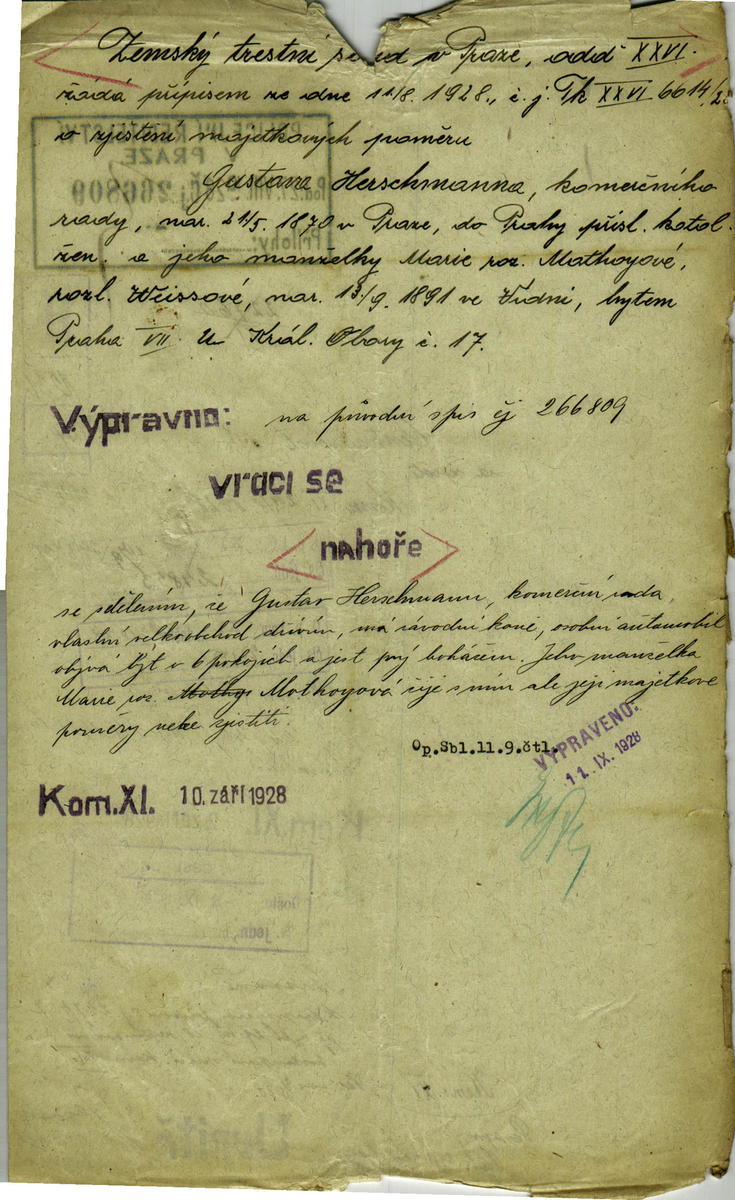 Zemský trestní soud v Praze, odd XXVI.
žádá přípisem ze dne 11/8. 1928., č. j. Tk XXVI 6614/
o zjištění majetkových poměru
Gustava Herschmanna, komerčního
rady, nar. 21/5. 1870 v Praze, do Prahy přísl. katol.
žen. a jeho manželky Marie roz. Mathoyové,
rozl. Weissové, nar. 13/9. 1891 ve Vídni, bytem
Praha VII. U Král. Obory č. 17.
Výpravno: na původní spis čj 266809
vrací se
nahoře
se sdělením, že Gustav Herschmann, komerční rada,
vlastní velkoobchod dřívím, má závodní koně, osobní automobil
obývá být o 6 pokojích a jest prý boháčem. Jeho manželka
Marie roz. Mothoyová žije s ním ale její majetkové
poměry nelze zjistiti.
Op.Sbl.11.9.čtl.
VYPRAVENO:
11. IX. 1928
Kom.XI. 10. září 1928